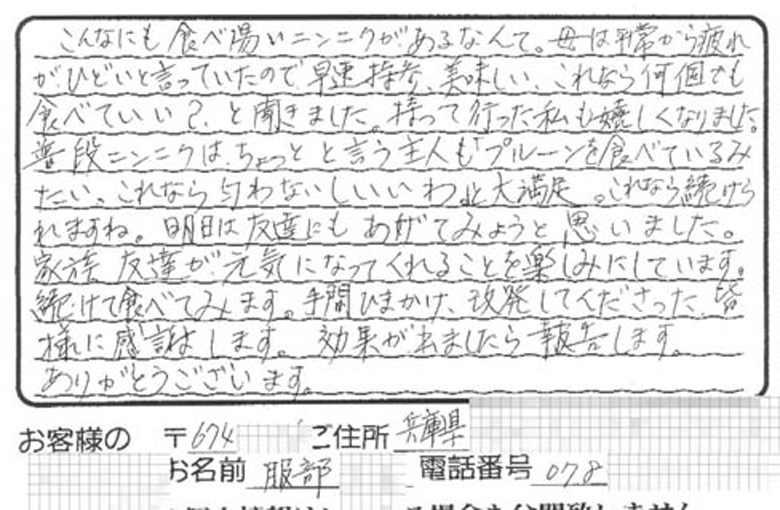 こんなにも食べ易いニンニクがあるなんて。母は平常から疲れ
がひどいと言っていたので、早速持参、美味しい、これなら何個でも
食べていい?、と聞きました。持って行った私も嬉しくなりました。
普段ニンニクは、ちょっとと言う主人も「プルーンを食べているみ
たい。これなら匂わないしいいわ」と大満足。これなら続けら
れますね。明日は友達にもあげてみようと思いました。
家族、友達が元気になってくれることを楽しみにしています。
続けて食べてみます。手間ひまかけ、改発してくださった、皆
様に感謝します。効果が出ましたら報告します。
ありがとうございます。
お客様の 〒674 ご住所 兵庫県
お名前 服部 電話番号 078